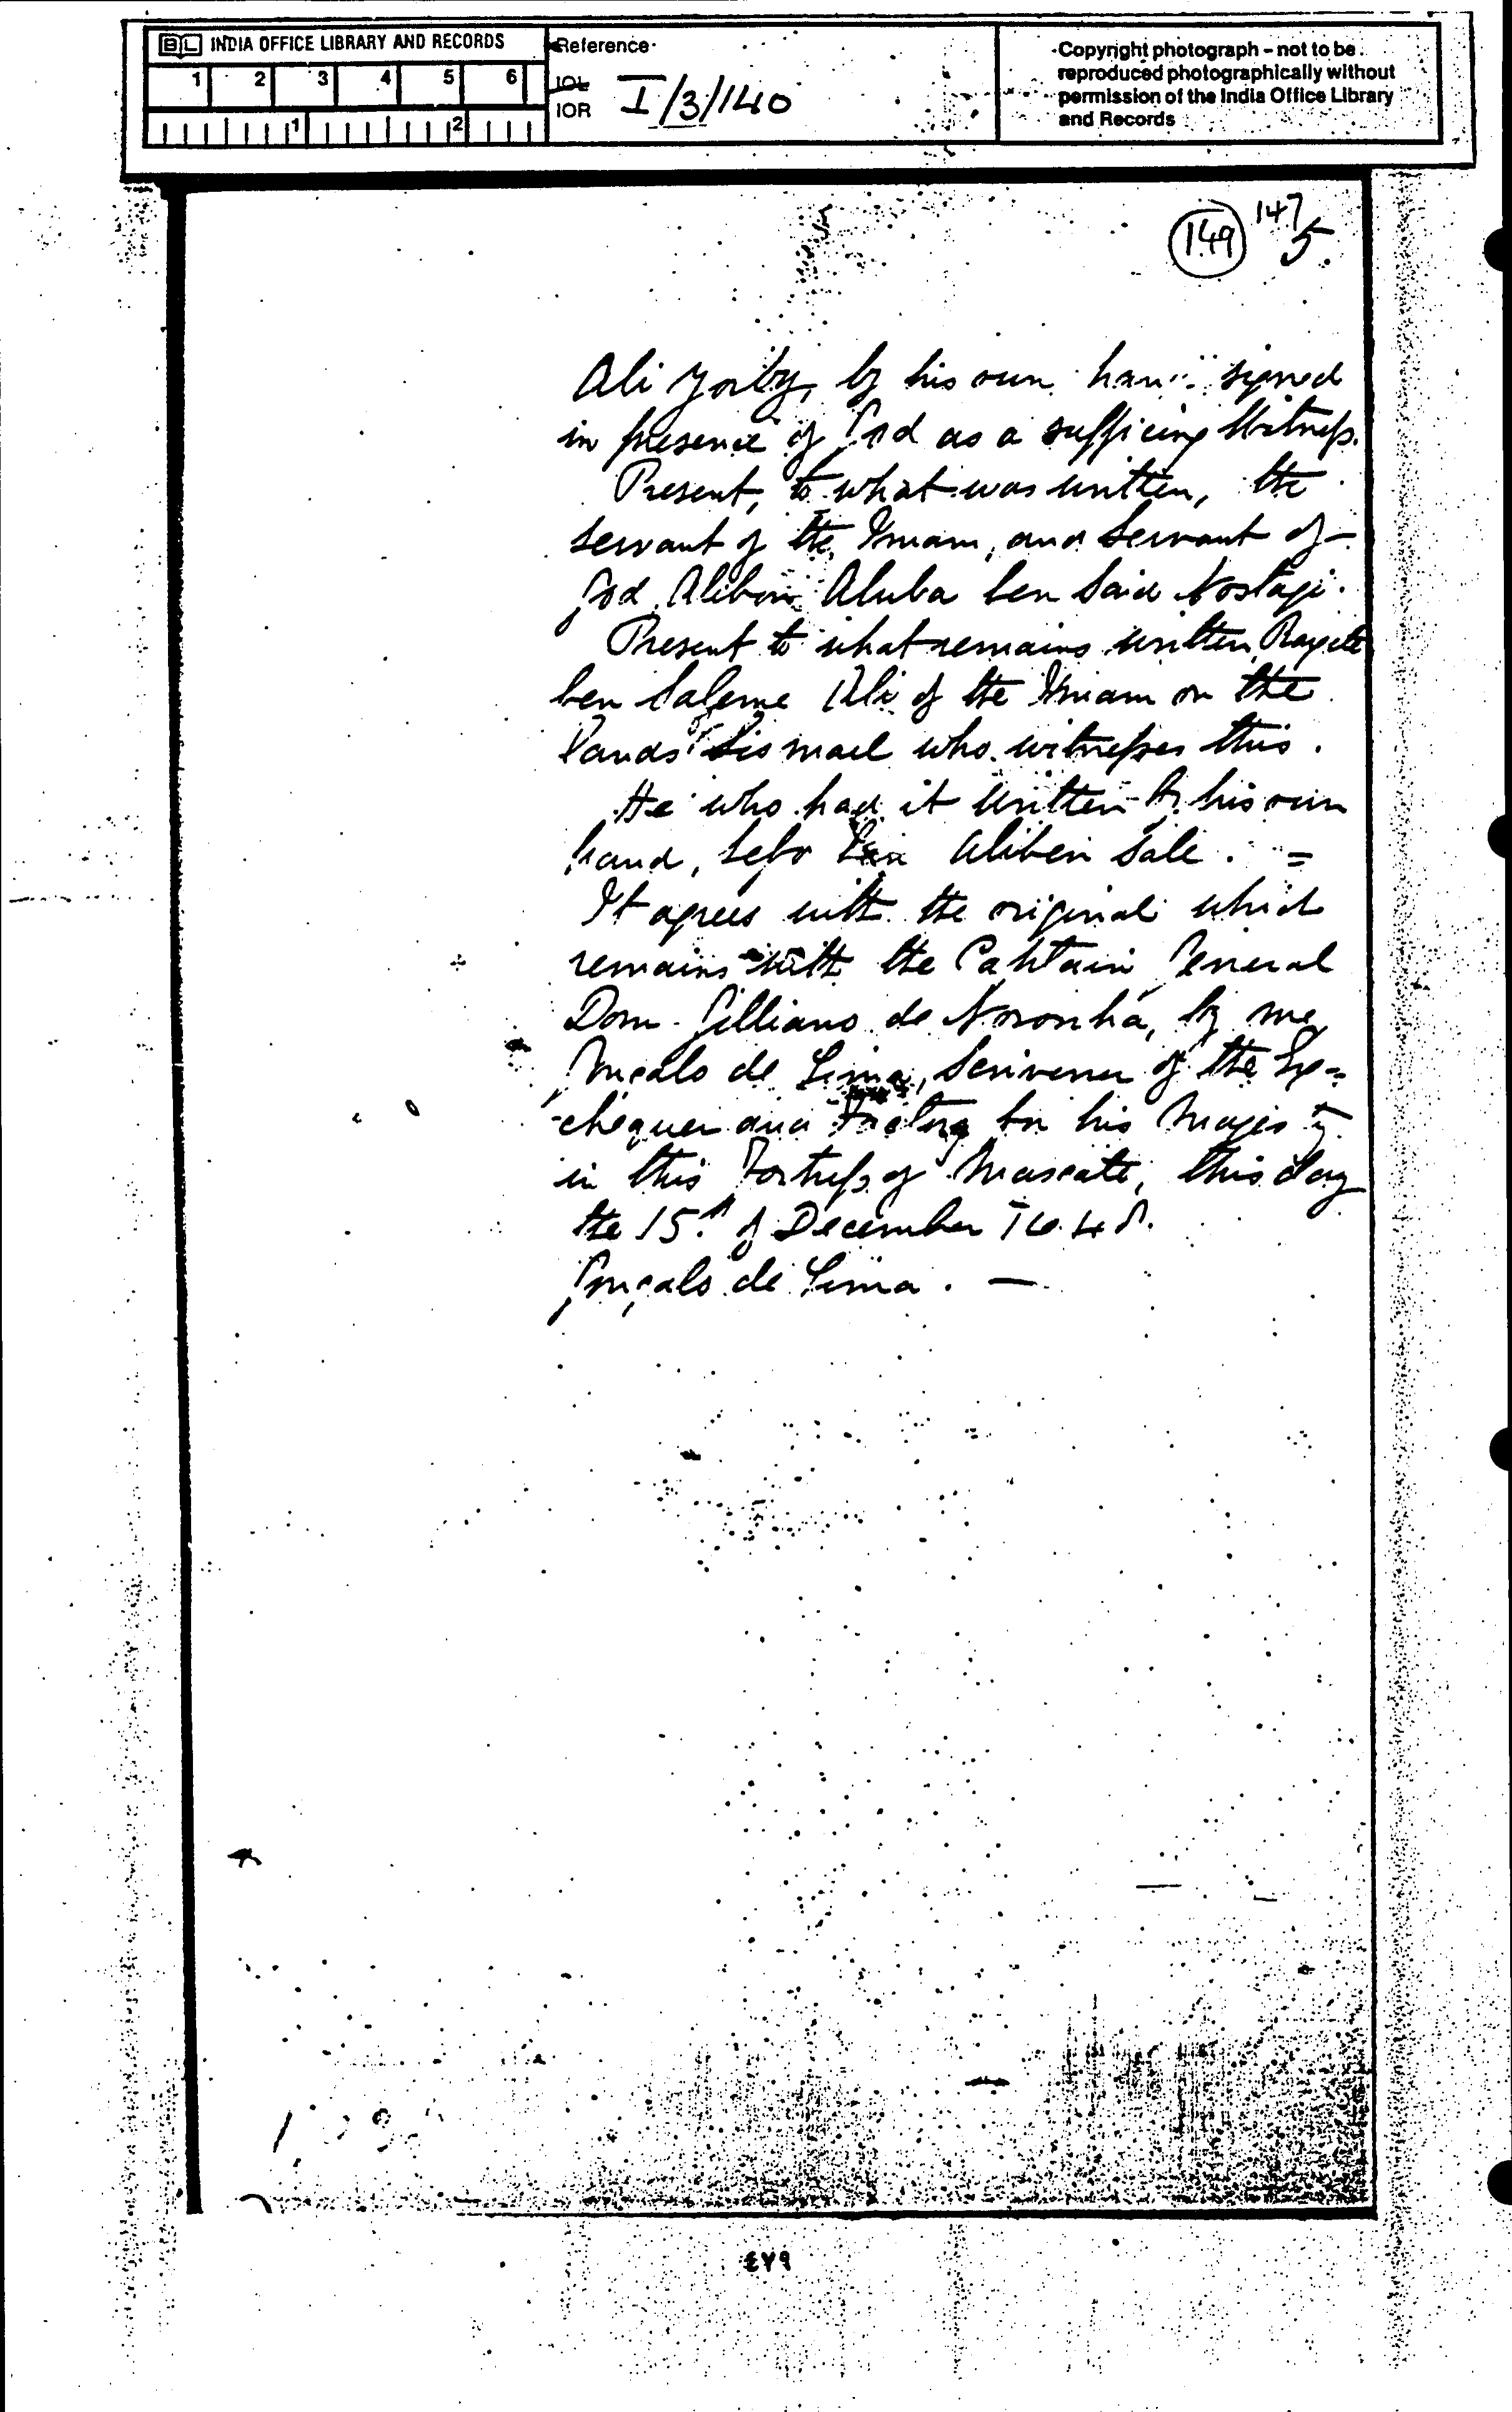 BL INDIA OFFICE LIBRARY AND RECORDS
1 2 3 4 5 6
1 2
Reference
IOL
IOR I/3/140
Copyright photograph - not to be
reproduced photographically without
permission of the India Office Library
and Records
149 147
5.
Ali by his own signed
in presence of God as a sufficing Witness.
Present, to what was written, the
servant of the Imam, and Servant of
God Aluba ben Said
Present to what remains written
ben Saleme Ali of the Imam on the
Lands who witnesses this.
He who had it written by his own
hand, Aliben Sale. =
It agrees with the original which
remains with the Captain General
Dom Gilliano de Noronha, by me
de Lima, Scrivener of the Ex=
chequer and Factory for his Majesty
in this Fortress of Mascate, this day
the 15th of December 1648.
Gonçalo de Lima. —
٤٧٩